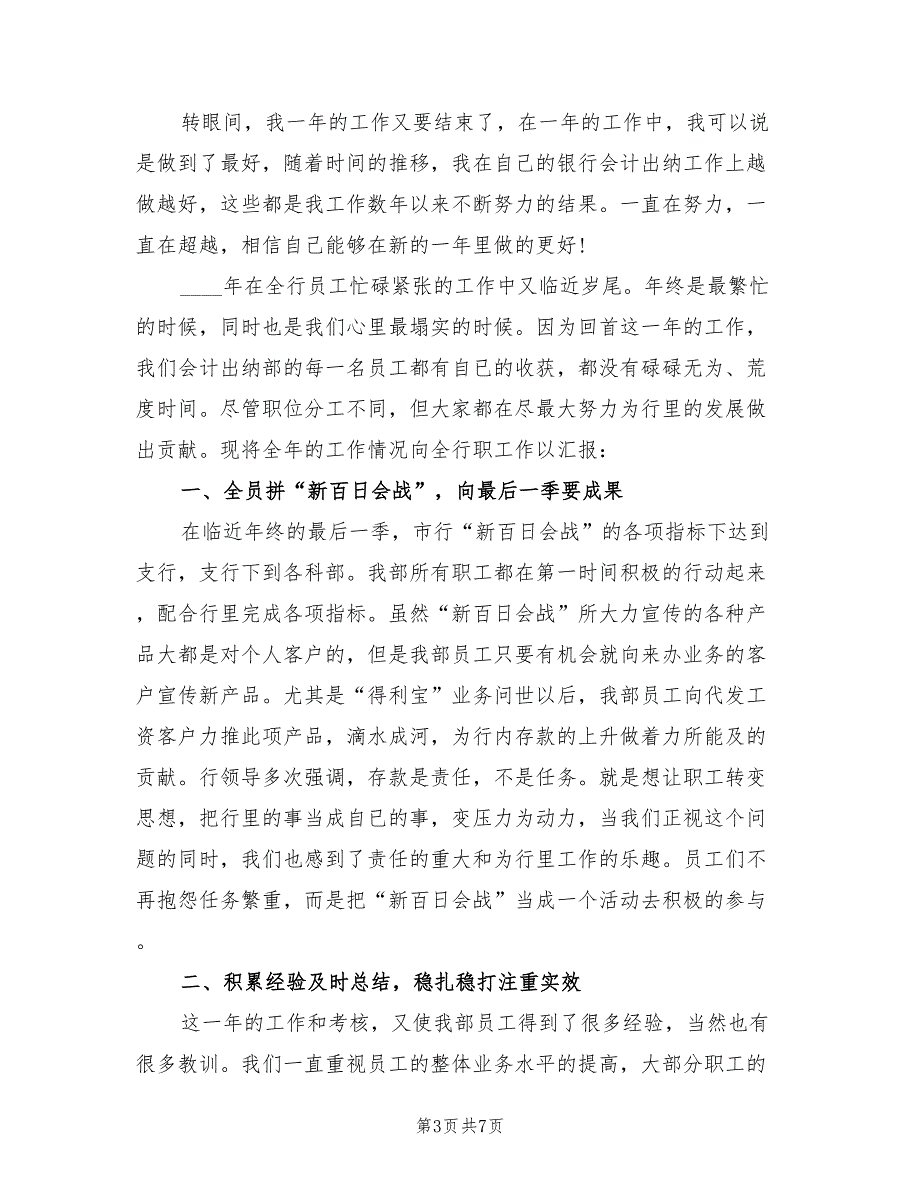 转眼间，我一年的工作又要结束了，在一年的工作中，我可以说
是做到了最好，随着时间的推移，我在自己的银行会计出纳工作上越
做越好，这些都是我工作数年以来不断努力的结果。一直在努力，一
直在超越，相信自己能够在新的一年里做的更好!
____年在全行员工忙碌紧张的工作中又临近岁尾。年终是最繁忙
的时候，同时也是我们心里最塌实的时候。因为回首这一年的工作，
我们会计出纳部的每一名员工都有自已的收获，都没有碌碌无为、荒
度时间。尽管职位分工不同，但大家都在尽最大努力为行里的发展做
出贡献。现将全年的工作情况向全行职工作以汇报：
一、全员拼“新百日会战”，向最后一季要成果
在临近年终的最后一季，市行“新百日会战”的各项指标下达到
支行，支行下到各科部。我部所有职工都在第一时间积极的行动起来
，配合行里完成各项指标。虽然“新百日会战”所大力宣传的各种产
品大都是对个人客户的，但是我部员工只要有机会就向来办业务的客
户宣传新产品。尤其是“得利宝”业务问世以后，我部员工向代发工
资客户力推此项产品，滴水成河，为行内存款的上升做着力所能及的
贡献。行领导多次强调，存款是责任，不是任务。就是想让职工转变
思想，把行里的事当成自已的事，变压力为动力，当我们正视这个问
题的同时，我们也感到了责任的重大和为行里工作的乐趣。员工们不
再抱怨任务繁重，而是把“新百日会战”当成一个活动去积极的参与
。
二、积累经验及时总结，稳扎稳打注重实效
这一年的工作和考核，又使我部员工得到了很多经验，当然也有
很多教训。我们一直重视员工的整体业务水平的提高，大部分职工的
第3页共7页